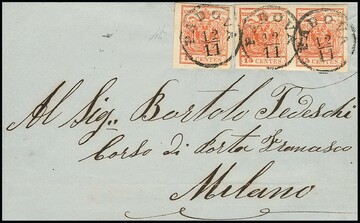 PADOVA
12
11
PADOVA
12
11
PADOVA
12
11
15 CENTES
15 CENTES
Al Sig.r Bortolo Tedeschi
Corso di Porta
Milano